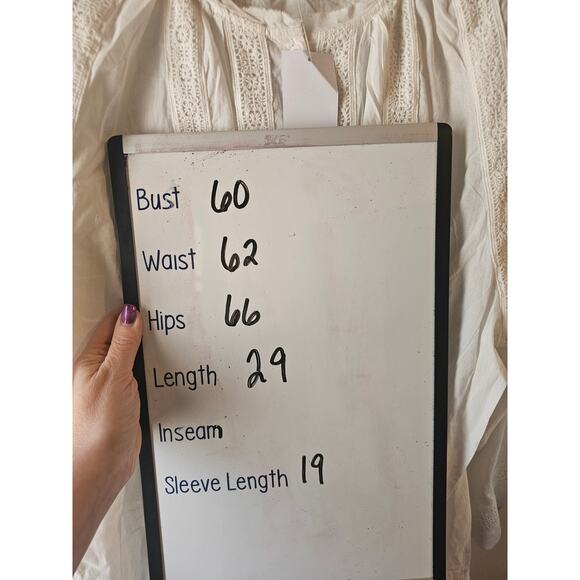 Bust 60
Waist 62
Hips 66
Length 29
Inseam
Sleeve Length 19